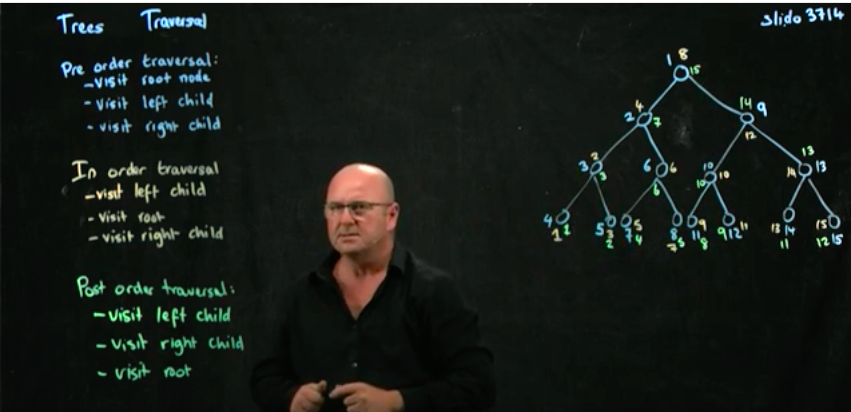 Trees Traversal
slido 3714
Pre order traversal:
- visit root node
- visit left child
- visit right child
In order traversal
- visit left child
- visit root
- visit right child
Post order traversal:
- visit left child
- visit right child
- visit root
1 8 15
2 4 7
14 9 12
3 2 3
6 6 6
10 10 10
13 13 14
4 1 1
5 3 2
7 5 4
8 7 5
11 9 8
9 12 11
13 14 11
15 12 15